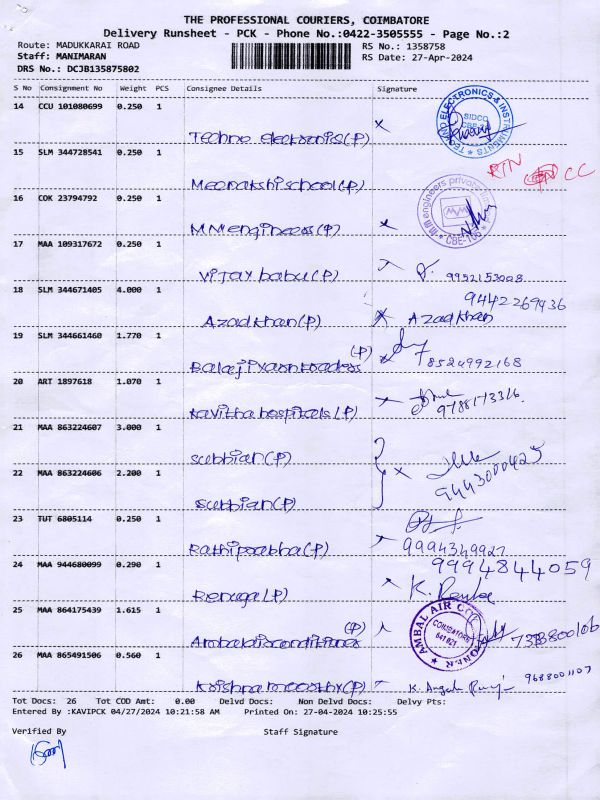 THE PROFESSIONAL COURIERS, COIMBATORE
Delivery Runsheet - PCK - Phone No.:0422-3505555 - Page No.:2
Route: MADUKKARAI ROAD RS No.: 1358758
Staff: MANIMARAN RS Date: 27-Apr-2024
DRS No.: DCJB135875802
S No Consignment No Weight PCS Consignee Details Signature
14 CCU 101080699 0.250 1
Techno electronis(P)
TECHNO ELECTRONICS & INSTRUMENTS SIDCO
15 SLM 344728541 0.250 1
Meenakshi school(P) RTN CC
16 COK 23794792 0.250 1
MM engineers(P)
mm engineers private CBE-105
17 MAA 109317672 0.250 1
Vijay babu(P) 9952153008
18 SLM 344671405 4.000 1 9442269936
Azad khan(P) Azad Khan
19 SLM 344661460 1.770 1 (P)
Balaji yarn traders 8524992168
20 ART 1897618 1.070 1
Kavitha hospitals(P)
21 MAA 863224607 3.000 1
Subbian(P)
22 MAA 863224606 2.200 1 9443000425
Subbian(P)
23 TUT 6805114 0.250 1
Rathiprabha(P) 9994349927
24 MAA 944680099 0.290 1 9994844059
Renuga(P) K. Renuka
25 MAA 864175439 1.615 1 (P)
Ambal airconditioner
AMBAL AIR CONDITIONER COIMBATORE 641 021
26 MAA 865491506 0.560 1 9688001107
Krishna moorthy(P) K.
Tot Docs: 26 Tot COD Amt: 0.00 Delvd Docs: Non Delvd Docs: Delvy Pts:
Entered By :KAVIPCK 04/27/2024 10:21:58 AM Printed On: 27-04-2024 10:25:55
Verified By Staff Signature